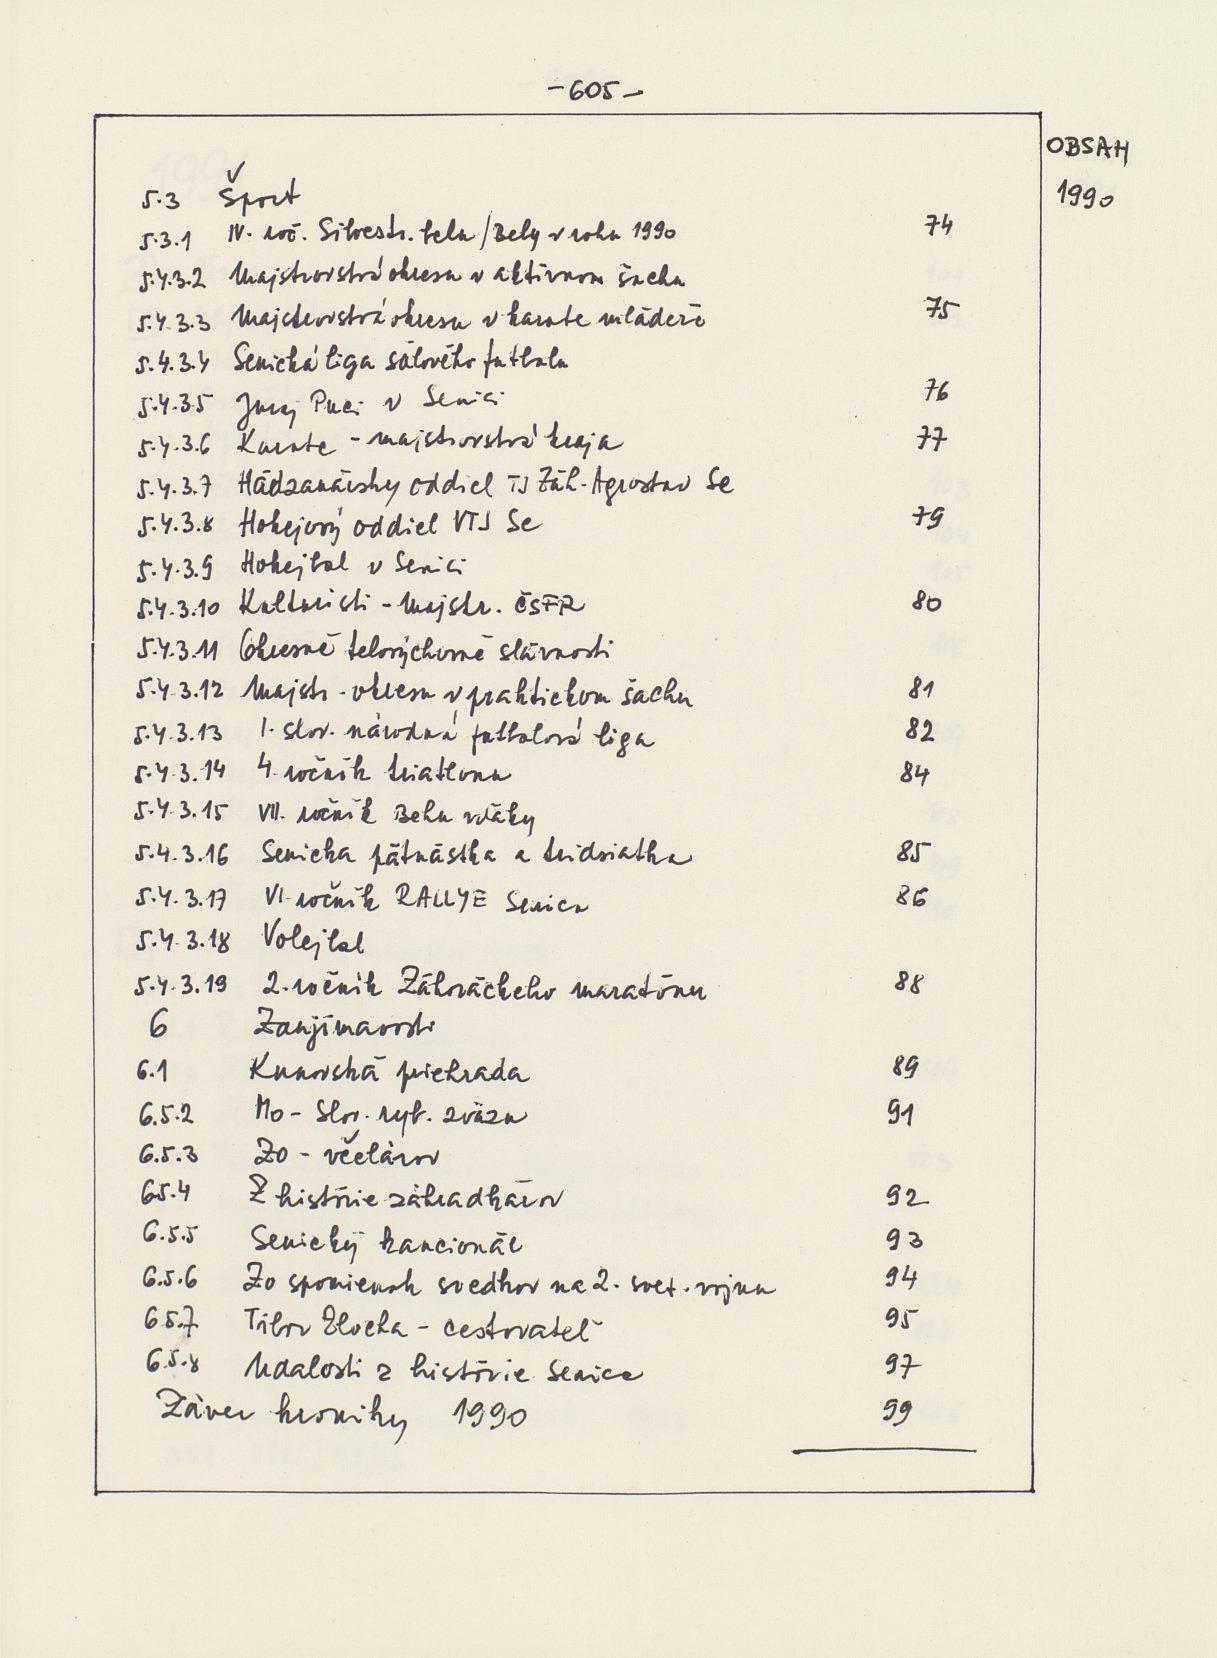 -605-
OBSAH
1990
5.3 Šport
5.3.1 IV. roč. Silvestr. behu/Behy v roku 1990 74
5.4.3.2 Majstrovstvá okresu v aktívnom šachu
5.4.3.3 Majstrovstvá okresu v karate mládeže 75
5.4.3.4 Senická liga sálového futbalu
5.4.3.5 Juraj Puci v Senici 76
5.4.3.6 Karate - majstrovstvá kraja 77
5.4.3.7 Hádzanársky oddiel TJ Záh. Agrostav Se
5.4.3.8 Hokejový oddiel VTJ Se 79
5.4.3.9 Hokejbal v Senici
5.4.3.10 Kulturisti - Majstr. ČSFR 80
5.4.3.11 Okresné telovýchovné slávnosti
5.4.3.12 Majstr. okresu v praktickom šachu 81
5.4.3.13 I. slov. národná futbalová liga 82
5.4.3.14 4. ročník triatlonu 84
5.4.3.15 VII. ročník Behu vďaky
5.4.3.16 Senická pätnástka a tridsiatka 85
5.4.3.17 VI. ročník RALLYE Senica 86
5.4.3.18 Volejbal
5.4.3.19 2. ročník Záhoráckeho maratónu 88
6 Zaujímavosti
6.1 Kunovská priehrada 89
6.5.2 Mo - Slov. ryb. zväzu 91
6.5.3 Zo - včelárov
6.5.4 Z histórie záhradkárov 92
6.5.5 Senický kancionál 93
6.5.6 Zo spomienok svedkov na 2. svet. vojnu 94
6.5.7 Tibor Zlocha - cestovateľ 95
6.5.8 Udalosti z histórie Senice 97
Záver kroniky 1990 99